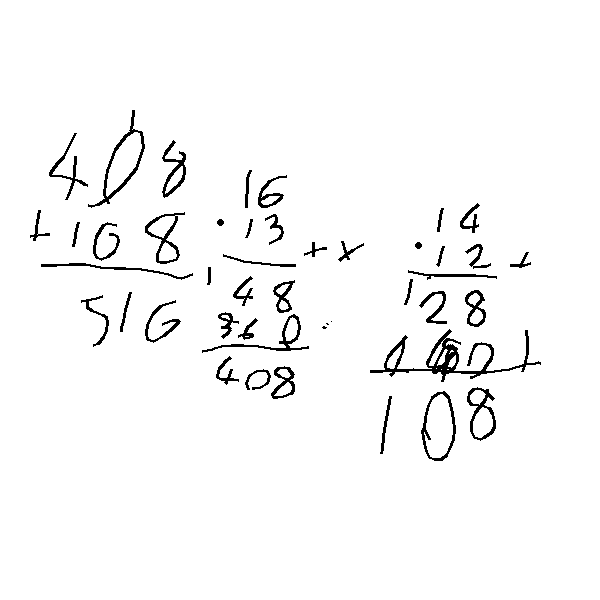 1
408
+108
516
16
· 13
+ x
1
48
360
408
14
· 12
+
1
28
1
108